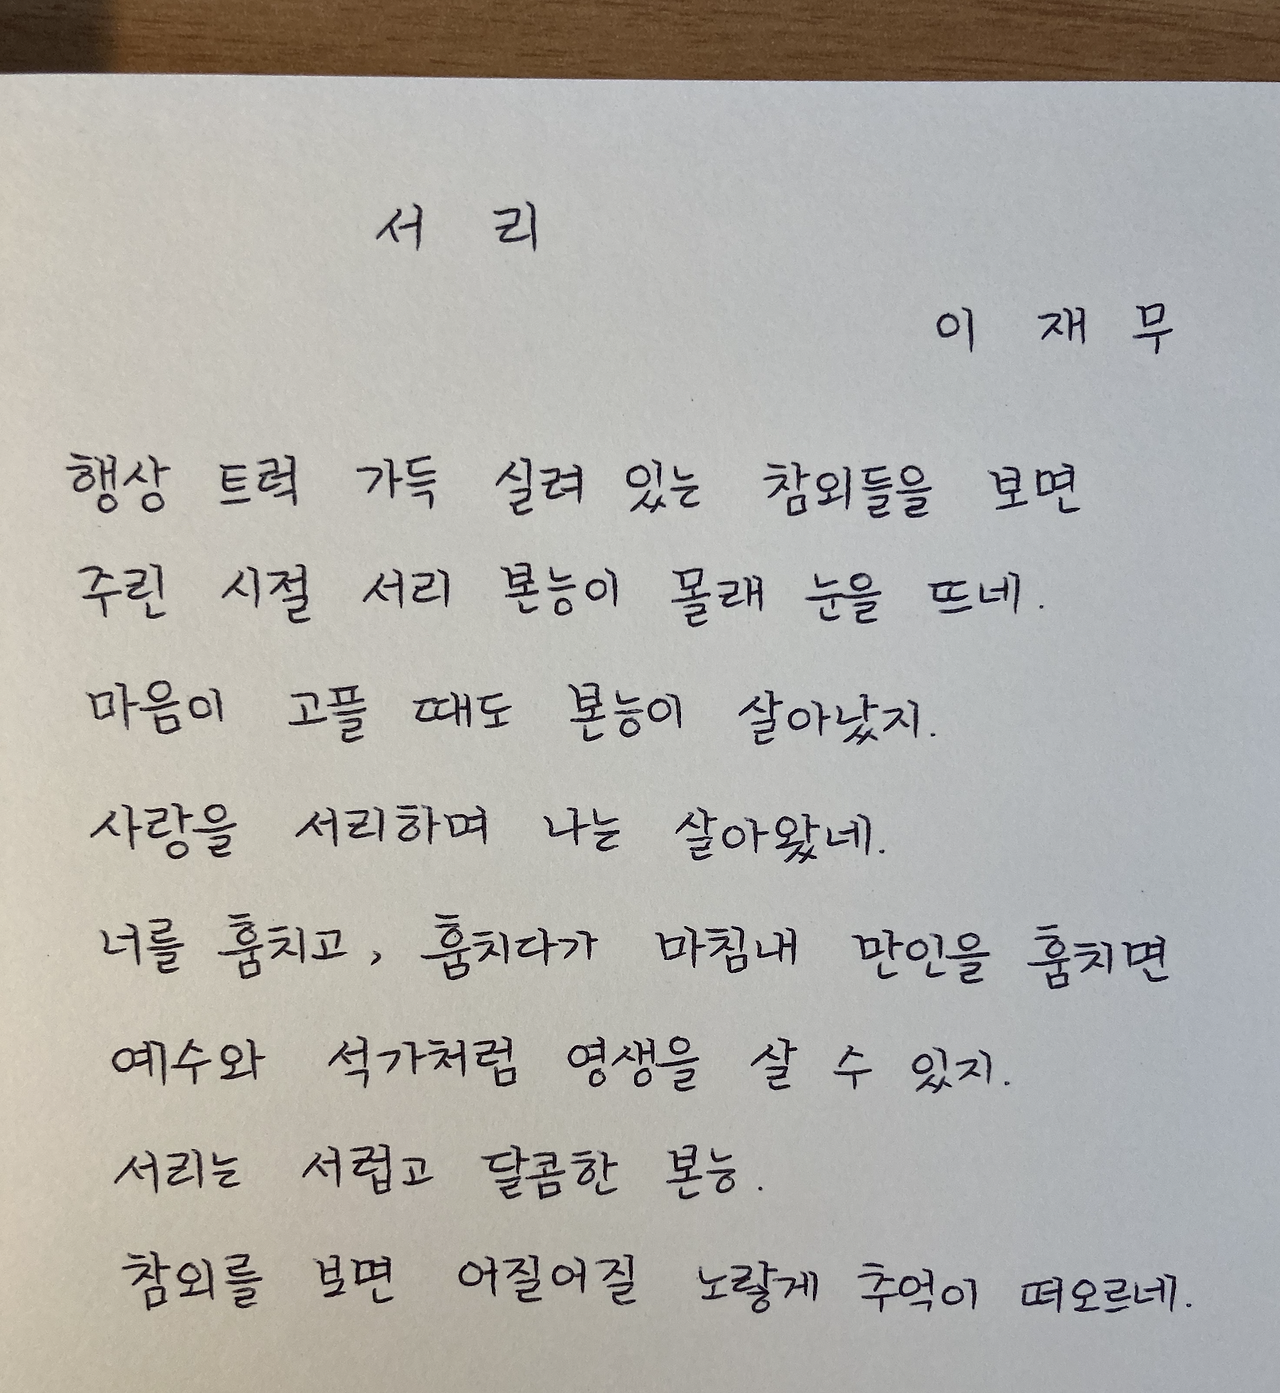 서 리
이 재 무
행상 트럭 가득 실려 있는 참외들을 보면
주린 시절 서리 본능이 몰래 눈을 뜨네.
마음이 고플 때도 본능이 살아났지.
사랑을 서리하며 나는 살아왔네.
너를 훔치고, 훔치다가 마침내 만인을 훔치면
예수와 석가처럼 영생을 살 수 있지.
서리는 서럽고 달콤한 본능.
참외를 보면 어질어질 노랗게 추억이 떠오르네.